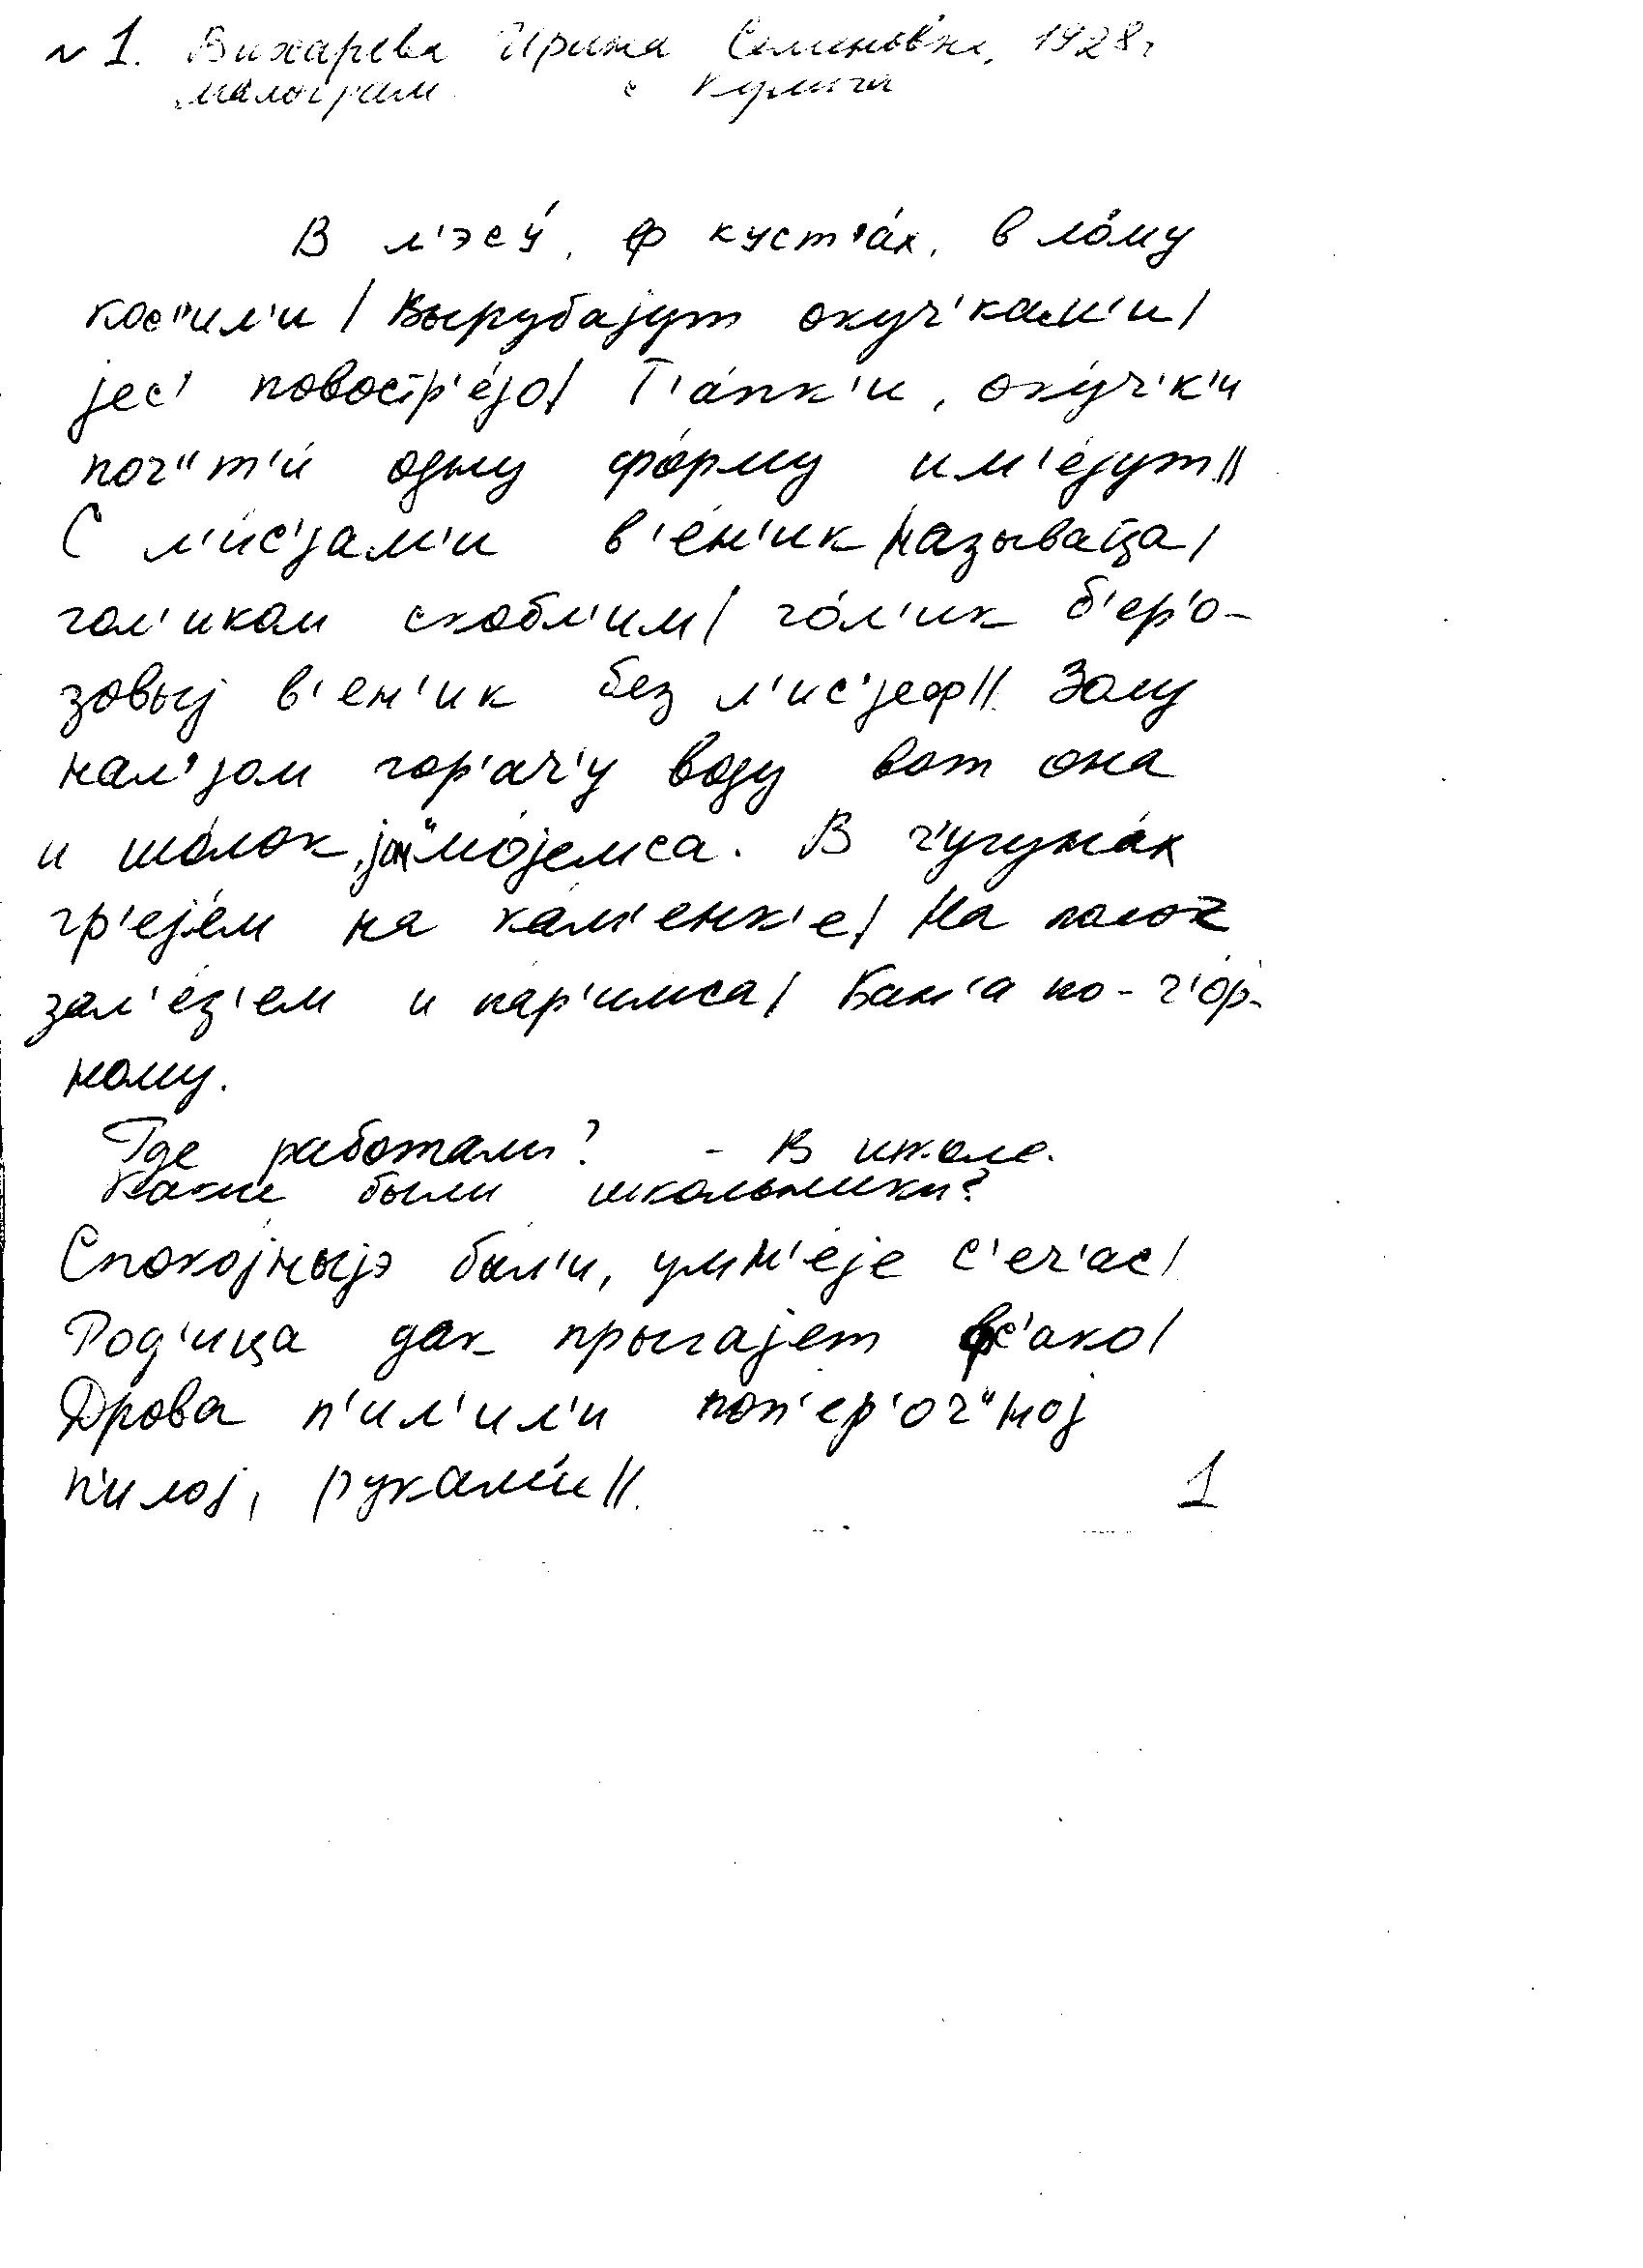 № 1. Вихарева Ирина Семеновна, 1928 г
малограм. с Кулига
В л'эсу́, ф куст'а́х, в ло́му
кос"ил'и / Вырубаjут окуч'кам'и /
jес' повостр'е́jо / Т'а́пк'и, оку́ч'к'и
поч"т'и́ одну фо́рму им'е́jут //
С л'и́с'jам'и в'е́н'ик / называ́ца /
гол'иком скобл'им / го́л'ик б'ер'о-
зовыj в'ен'ик без л'ис'jеф // Золу
нал'jом гор'ач'у воду вот она
и шо́лок, мо́jемса. В ч'угуна́х
гр'еjе́м на ка́м'енк'е / На полок
зал'е́з'ем и па́р'имса / Бан'а по-ч'о́р-
ному.
Где работали? - В школе.
Какие были школьники?
Споко́jныjэ был'и, умн'е́jе с'еч'ас /
Род'ица дак прыгаjет фс'ако /
Дрова п'ил'ил'и поп'ер'оч"ноj
п'илоj, рукам'и //.
1